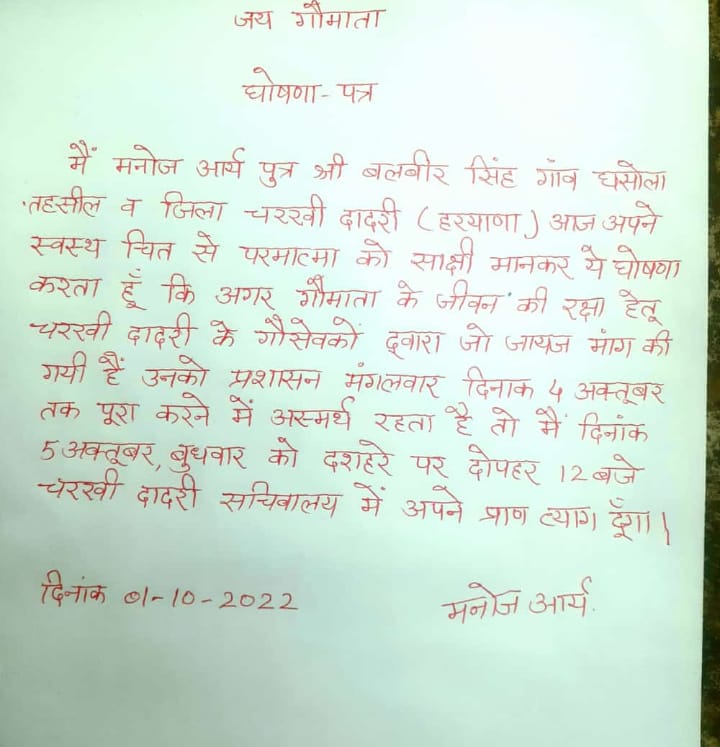 जय गौमाता
घोषणा-पत्र
मैं मनोज आर्य पुत्र श्री बलबीर सिंह गांव घसोला
तहसील व जिला चरखी दादरी (हरयाणा) आज अपने
स्वस्थ चित से परमात्मा को साक्षी मानकर ये घोषणा
करता हूँ कि अगर गौमाता के जीवन की रक्षा हेतू
चरखी दादरी के गौसेवकों द्वारा जो जायज मांग की
गयी हैं उनको प्रशासन मंगलवार दिनाक 4 अक्तूबर
तक पूरा करने में अस्मर्थ रहता है तो मैं दिनांक
5 अक्तूबर, बुधवार को दशहरे पर दोपहर 12 बजे
चरखी दादरी सचिवालय में अपने प्राण त्याग दूँगा।
दिनांक 01-10-2022 मनोज आर्य.